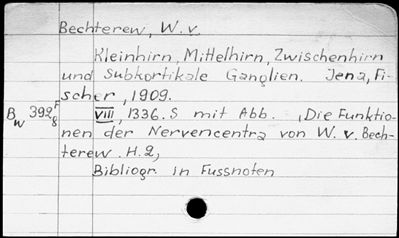 Bechterew, W. v.
Kleinhirn, Mittelhirn, Zwischenhirn
und Subkortikale Ganglien. Jena, Fi-
scher, 1909.
Bw 392 F/8 VIII, 1336. S mit Abb. , Die Funktio-
nen der Nervencentra von W. v. Bech-
terew. H. 2,
Bibliogr. in Fussnoten